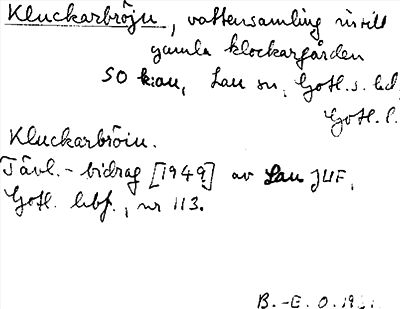 Kluckarbröjn, vattensamling intill
gamla klockargården
SO k:an, Lau sn, Gotl. s. hd,
Gotl. l.
Kluckarbröin.
Tävl.-bidrag [1949] av Lau JUF,
Gotl. hbf., nr 113.
B.-E. O.